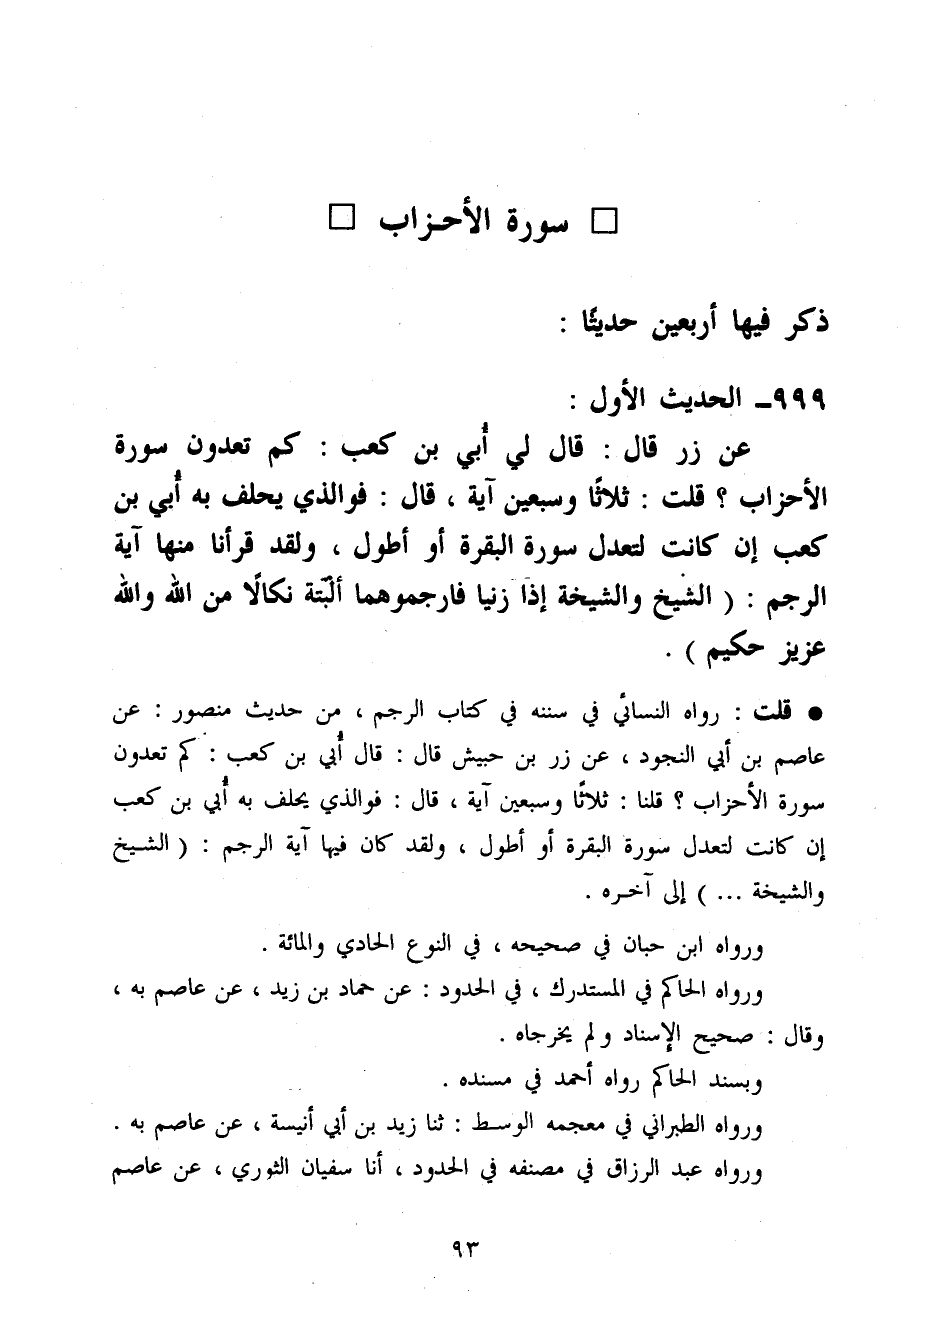 □ سورة الأحـزاب □
ذكر فيها أربعين حديثًا :
٩٩٩ـ الحديث الأول :
عن زر قال : قال لي أُبي بن كعب : كم تعدون سورة
الأحزاب ؟ قلت : ثلاثًا وسبعين آية ، قال : فوالذي يحلف به أُبي بن
كعب إن كانت لتعدل سورة البقرة أو أطول ، ولقد قرأنا منها آية
الرجم : ( الشيخ والشيخة إذا زنيا فارجموهما ألبتة نكالًا من الله والله
عزيز حكيم ) .
● قلت : رواه النسائي في سننه في كتاب الرجم ، من حديث منصور : عن
عاصم بن أبي النجود ، عن زر بن حبيش قال : قال أُبي بن كعب : كم تعدون
سورة الأحزاب ؟ قلنا : ثلاثًا وسبعين آية ، قال : فوالذي يحلف به أُبي بن كعب
إن كانت لتعدل سورة البقرة أو أطول ، ولقد كان فيها آية الرجم : ( الشـيخ
والشيخة ... ) إلى آخـره .
ورواه ابن حبان في صحيحه ، في النوع الحادي والمائة .
ورواه الحاكم في المستدرك ، في الحدود : عن حماد بن زيد ، عن عاصم به ،
وقال : صحيح الإسناد ولم يخرجاه .
وبسند الحاكم رواه أحمد في مسنده .
ورواه الطبراني في معجمه الوسـط : ثنا زيد بن أبي أنيسة ، عن عاصم به .
ورواه عبد الرزاق في مصنفه في الحدود ، أنا سفيان الثوري ، عن عاصم
٩٣